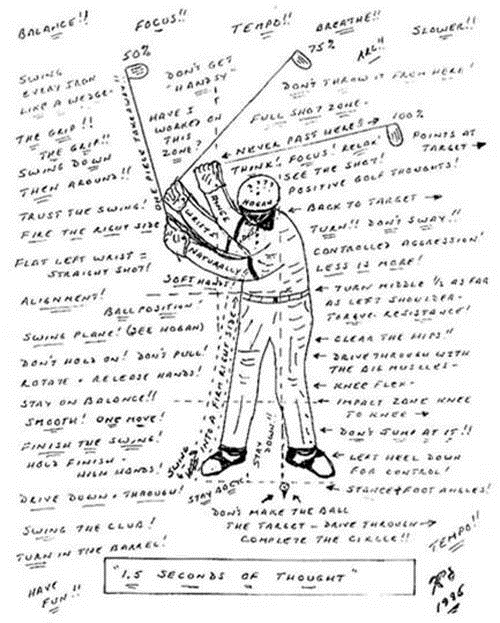 BALANCE!! FOCUS!! TEMPO!! BREATHE!! SLOWER!!
50% 75% ARG!!
SWING
EVERY IRON
LIKE A WEDGE-
THE GRIP!!
THE GRIP!!
SWING DOWN
THEN AROUND!!
TRUST THE SWING!
FIRE THE RIGHT SIDE
FLAT LEFT WRIST =
STRAIGHT SHOT!
ALIGNMENT!
BALL POSITION!
SWING PLANE! (SEE HOGAN)
DON'T HOLD ON! DON'T PULL!
ROTATE + RELEASE HANDS!
STAY ON BALANCE!!
SMOOTH! ONE MOVE!
FINISH THE SWING!
HOLD FINISH -
HIGH HANDS!
DRIVE DOWN + THROUGH!
SWING THE CLUB!
TURN IN THE BARREL!
HAVE
FUN!!
ONE PIECE TAKEAWAY
DON'T GET
"HANDSY"
HAVE I
WORKED ON
THIS
ZONE?
DON'T THROW IT FROM HERE!
FULL SHOT ZONE-
100%
NEVER PAST HERE!!
POINTS AT
TARGET
THINK! FOCUS! RELAX!
SEE THE SHOT!
POSITIVE GOLF THOUGHTS!
HOGAN
HINGE
WRISTS
NATURALLY!
SOFT HANDS!
BACK TO TARGET
TURN!! DON'T SWAY!!
CONTROLLED AGGRESSION!
LESS IS MORE!
TURN MIDDLE 1/2 AS FAR
AS LEFT SHOULDER-
TORQUE. RESISTANCE!
CLEAR THE HIPS!!
DRIVE THROUGH WITH
THE BIG MUSCLES-
KNEE FLEX-
IMPACT ZONE KNEE
TO KNEE
DON'T JUMP AT IT!!
LEFT HEEL DOWN
FOR CONTROL!
STANCE + FOOT ANGLES!
SWING
INTO A FIRM RIGHT SIDE
STAY DOWN!!
STAY BACK!
DON'T MAKE THE BALL
THE TARGET - DRIVE THROUGH
COMPLETE THE CIRCLE!!
TEMPO!!
"1.5 SECONDS OF THOUGHT"
1996